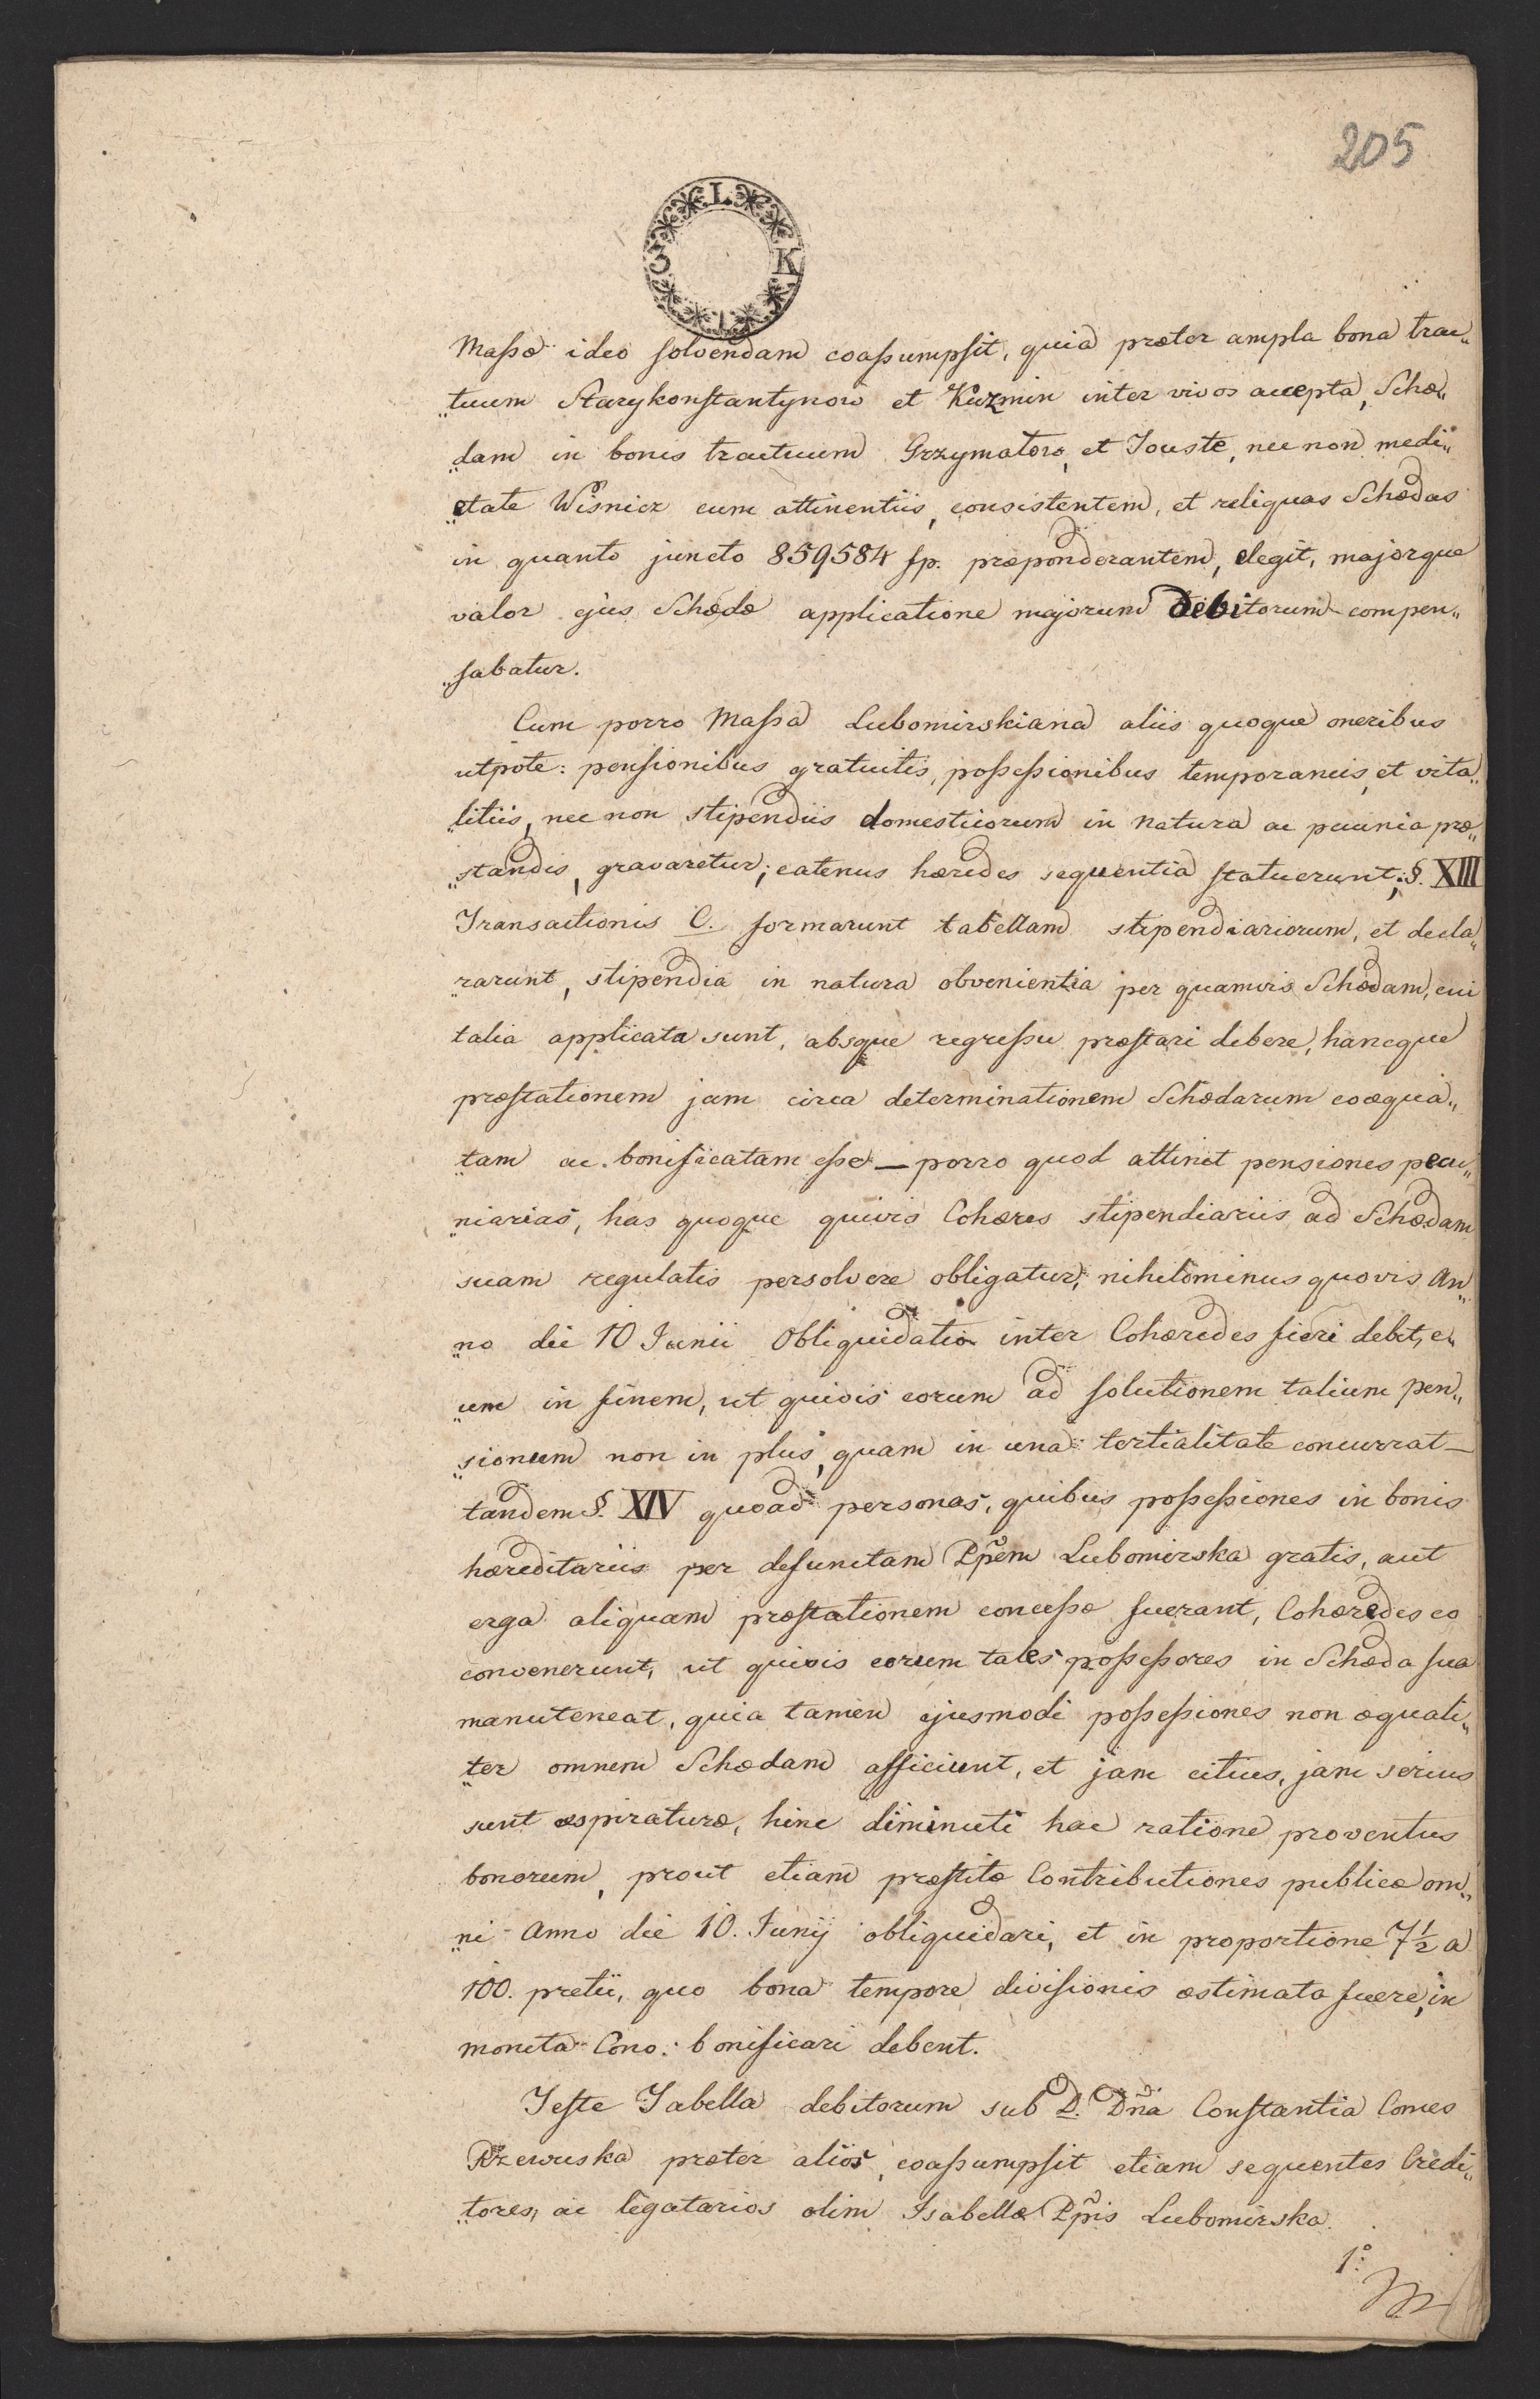 205
L
3 K
1
Massæ ideo solvendam coassumpsit, quia præter ampla bona trac„
„tuum Starykonstantynow et Kuzmin inter vivos accepta, Schæ„
„dam in bonis tractuum Grzymatow, et Touste, nec non medi„
„etate Wisnicz cum attinentiis, consistentem, et reliquas Schædas
in quanto juncto 859584 fp. præponderantem, elegit, majorque
valor ejus Schædæ applicatione majorum debitorum compen„
„sabatur.
Cum porro Massa Lubomirskiana aliis quoque oneribus
utpote: pensionibus gratuitis, possessionibus temporaneis, et vita„
„litiis, nec non stipendiis domesticorum in natura ac pecunia præ„
„standis, gravaretur; eatenus hæredes sequentia statuerunt; §. XIII
Transactionis C. formarunt tabellam stipendiariorum, et decla„
„rarunt, stipendia in natura obvenientia per quamvis Schædam, cui
talia applicata sunt, absque regressu præstari debere, hancque
præstationem jam circa determinationem Schædarum coæqua„
„tam ac bonificatam esse — porro quod attinet pensiones pecu„
„niarias, has quoque quivis Cohæres stipendiariis ad Schædam
suam regulatis persolvere obligatur; nihilominus quovis An„
„no die 10 Junii Obliquidatio inter Cohæredes fieri debet, e„
„um in finem, ut quivis eorum ad solutionem talium pen„
„sionum non in plus, quam in una tertialitate concurrat —
tandem §. XIV quoad personas, quibus possessiones in bonis
hæreditariis per defunctam Ppem Lubomirska gratis, aut
erga aliquam præstationem concessæ fuerant, Cohæredes eo
convenerunt, ut quivis eorum tales possessores in Schæda sua
manuteneat, quia tamen ejusmodi possessiones non æquali„
„ter omnem Schædam afficiunt, et jam citius, jam serius
sunt exspiraturæ, hinc diminuti hac ratione proventus
bonorum, prout etiam præstitæ Contributiones publicæ om„
„ni Anno die 10. Junij obliquidari, et in proportione 7½ a
100. pretii, quo bona tempore divisionis æstimata fuere, in
moneta Conv: bonificari debent.
Teste Tabella debitorum sub D. Dña Constantia Comes
Rzewuska præter alios, coassumpsit etiam sequentes Credi„
„tores, ac legatarios olim Isabellæ Ppis Lubomirska.
1º: